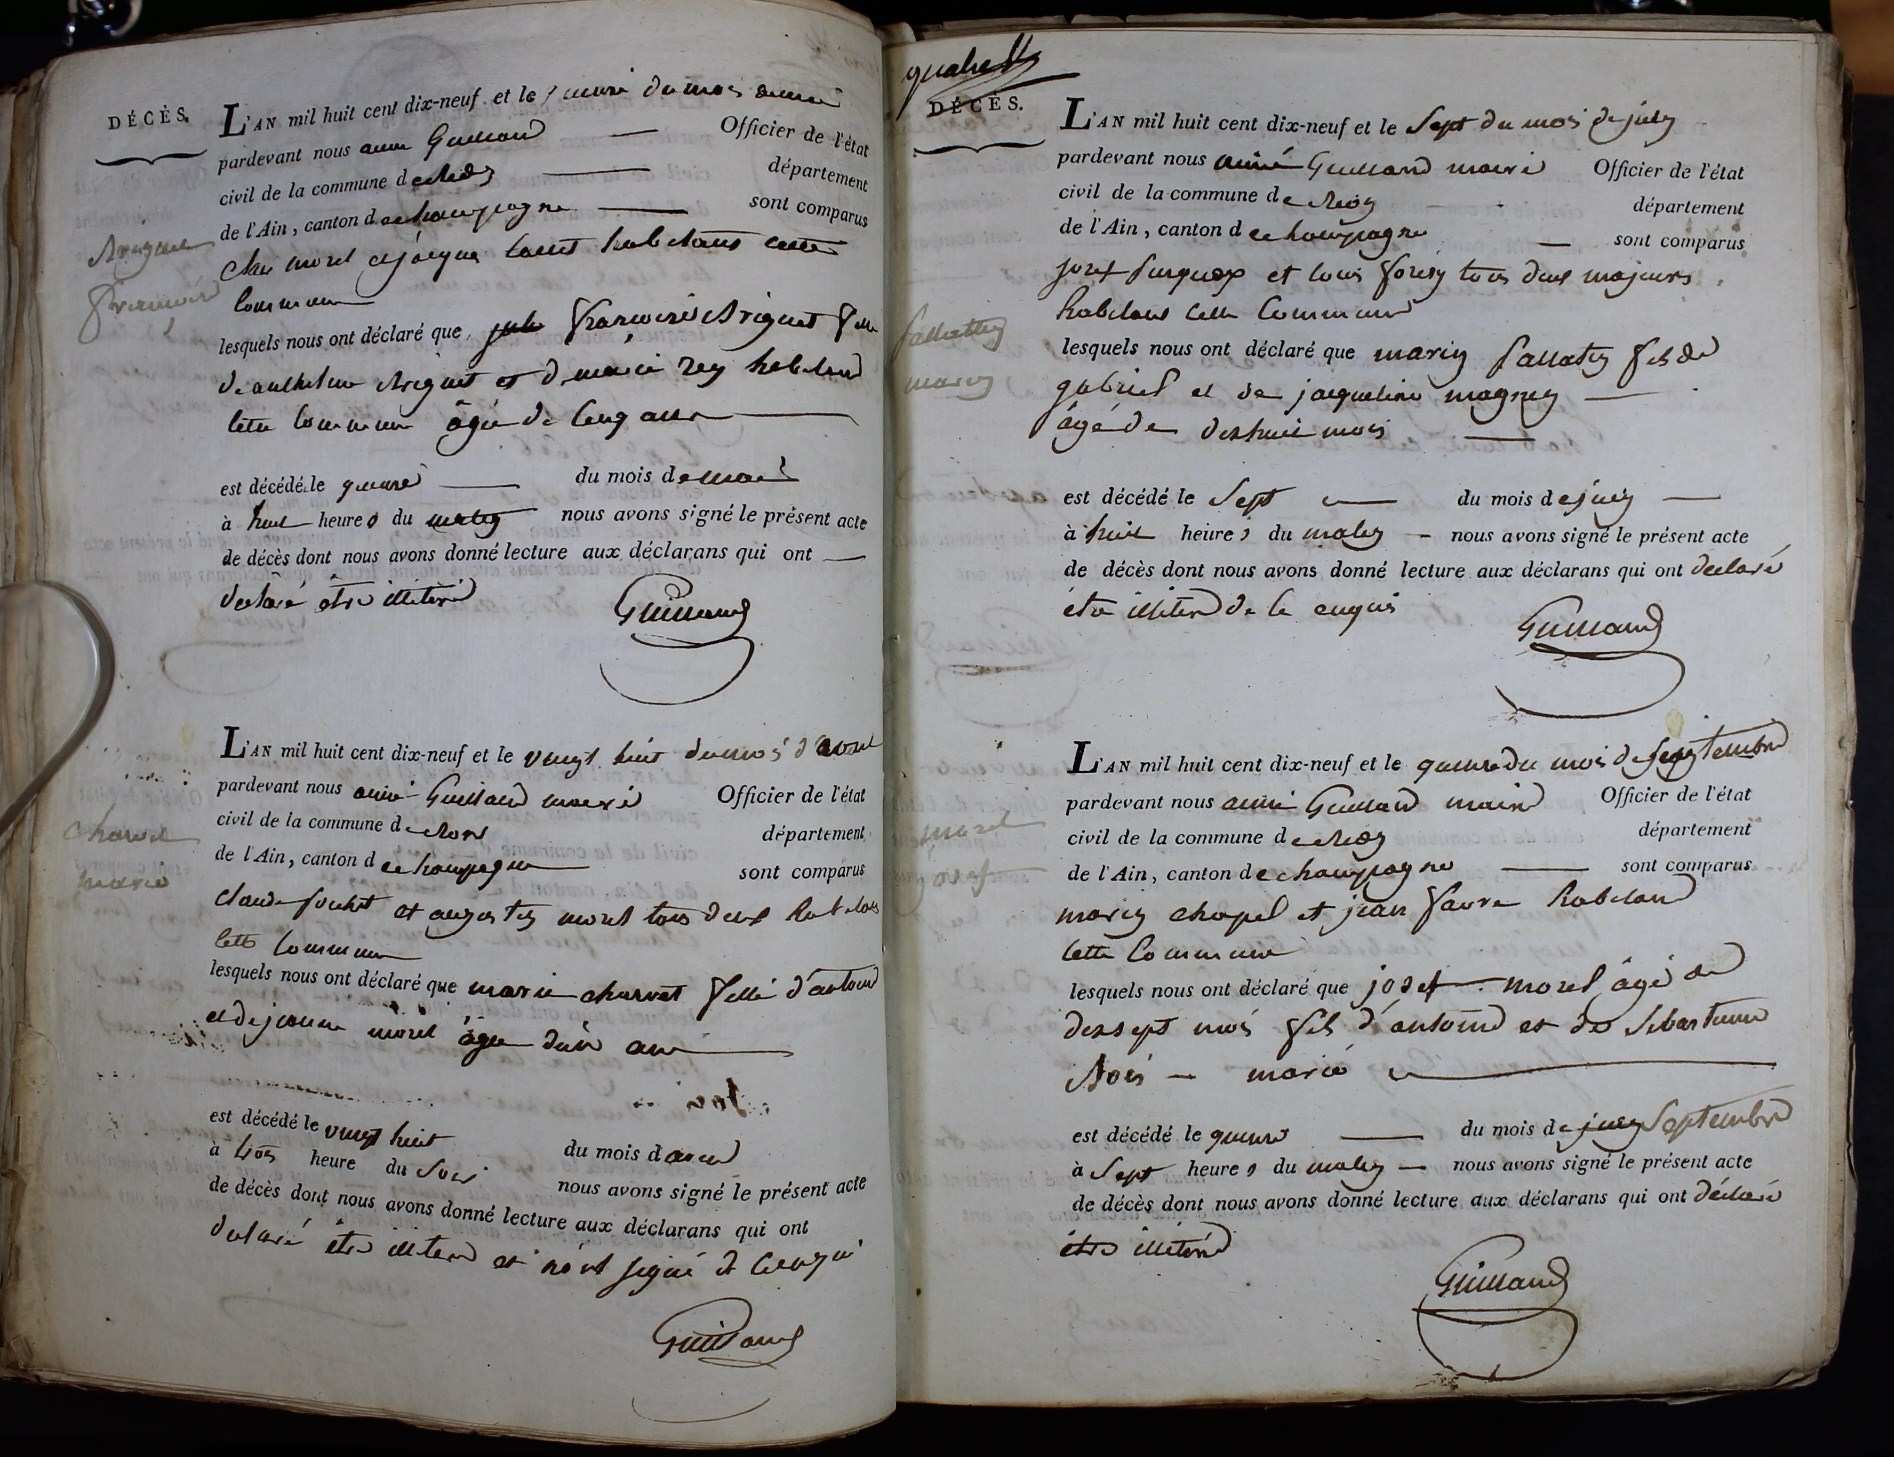 DÉCÈS.
L'AN mil huit cent dix-neuf et le du mois
pardevant nous Guilland Officier de l'état
civil de la commune de département
de l'Ain, canton de champagne sont comparus
morel et habitans cette
commune
Briguet
lesquels nous ont déclaré que françoise Briguet fille
de anthelme Briguet et de marie rey habitans
cette commune âgée de cinq ans
est décédé le quinze du mois de mai
à huit heures du matin nous avons signé le présent acte
de décès dont nous avons donné lecture aux déclarans qui ont
déclaré être illitéré
Guilland
L'AN mil huit cent dix-neuf et le vingt huit du mois d'avril
pardevant nous aimé Guilland maire Officier de l'état
civil de la commune de département
de l'Ain, canton de champagne sont comparus
charvet
marie
claude et augustin morel tous deux habitans
cette commune
lesquels nous ont déclaré que marie charvet fille d'antoine
et de jeanne morel âgée d'un an
est décédé le vingt huit du mois d'avril
à trois heure du soir nous avons signé le présent acte
de décès dont nous avons donné lecture aux déclarans qui ont
déclaré être illitéré et n'ont signé de ce enquis
Guilland
DÉCÈS.
L'AN mil huit cent dix-neuf et le Sept du mois de juin
pardevant nous aimé Guilland maire Officier de l'état
civil de la commune de département
de l'Ain, canton de champagne sont comparus
josef et louis tous deux majeurs
habitans cette commune
pallatin
marin
lesquels nous ont déclaré que marin pallatin fils de
gabriel et de jacqueline magnin
âgé de dixhuit mois
est décédé le Sept du mois de juin
à huit heures du matin nous avons signé le présent acte
de décès dont nous avons donné lecture aux déclarans qui ont déclaré
être illitéré de ce enquis
Guilland
L'AN mil huit cent dix-neuf et le quinze du mois de Septembre
pardevant nous aimé Guilland maire Officier de l'état
civil de la commune de département
de l'Ain, canton de champagne sont comparus
morel
josef
marin chapel et jean favre habitans
cette commune
lesquels nous ont déclaré que josef morel âgé de
dixsept mois fils d'antoine et de Sebastienne
marié
est décédé le quinze du mois de juin Septembre
à Sept heures du matin nous avons signé le présent acte
de décès dont nous avons donné lecture aux déclarans qui ont déclaré
être illitéré
Guilland